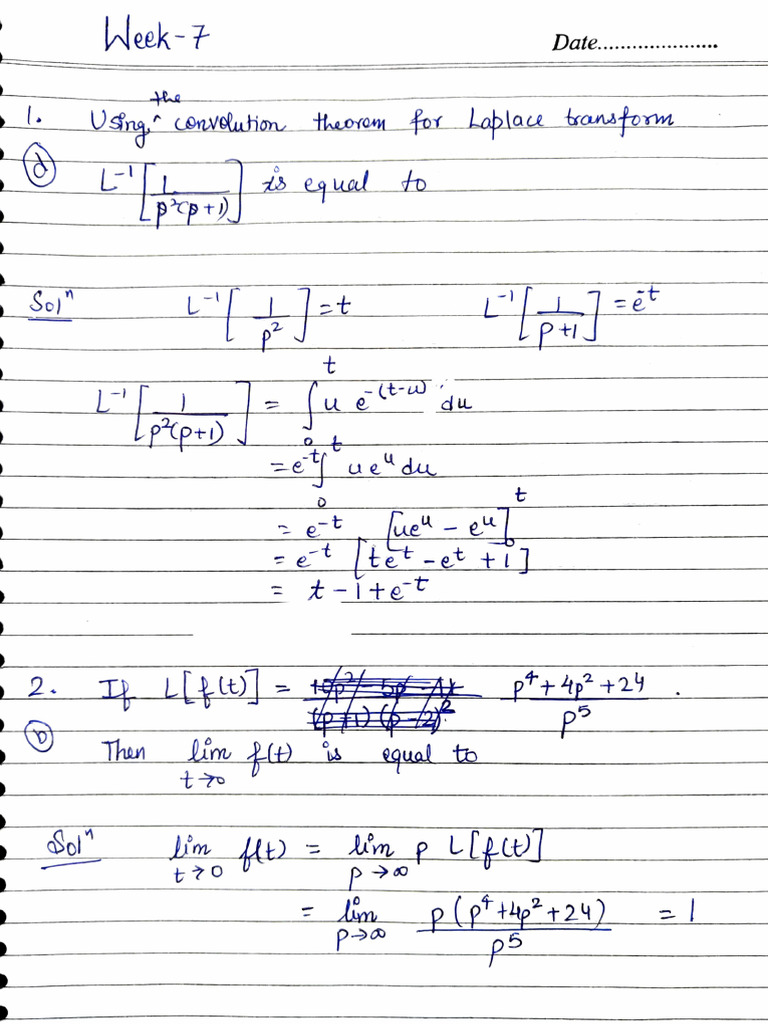 Week-7
Date.....................
1. Using the convolution theorem for Laplace transform
(d) L⁻¹[1/(p²(p+1))] is equal to
Solⁿ L⁻¹[1/p²] = t L⁻¹[1/(p+1)] = e^-t
L⁻¹[1/(p²(p+1))] = ∫₀^t u e^-(t-u) du
= e^-t ∫₀^t u e^u du
= e^-t [ue^u - e^u]₀^t
= e^-t [te^t - e^t + 1]
= t - 1 + e^-t
2. If L[f(t)] = (p⁴ + 4p² + 24)/p⁵.
(b) Then lim t→0 f(t) is equal to
Solⁿ lim t→0 f(t) = lim p→∞ p L[f(t)]
= lim p→∞ p(p⁴ + 4p² + 24)/p⁵ = 1